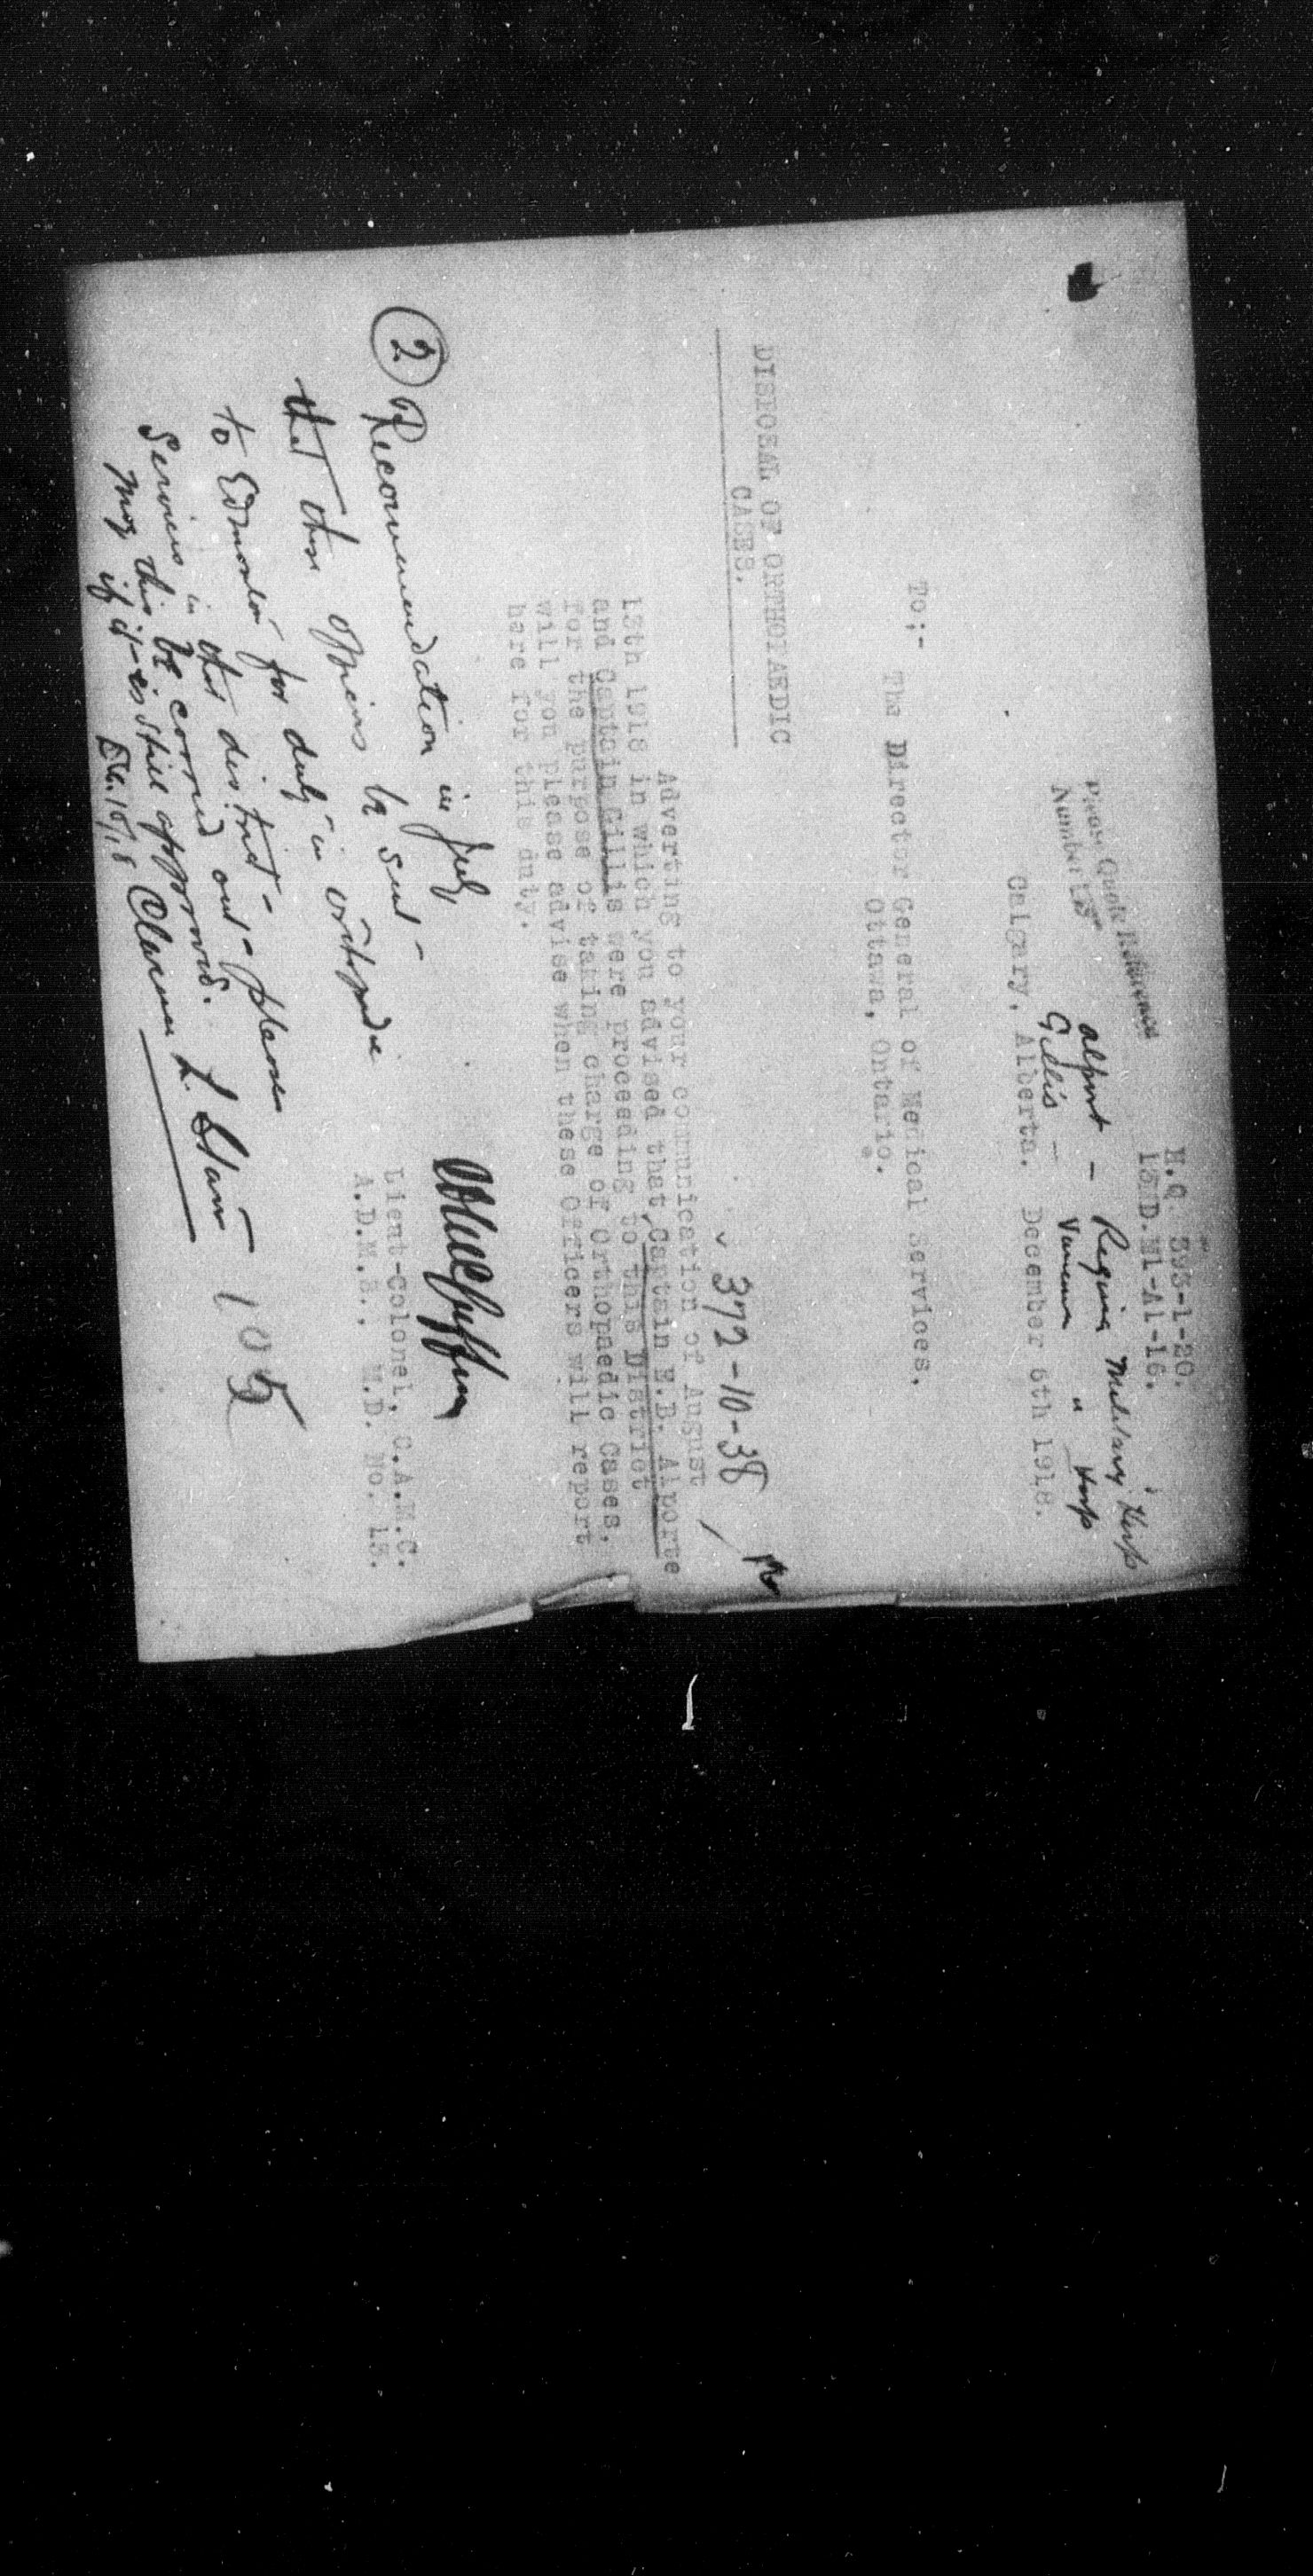 H.Q. 393-1-20.
13.D.M1-A1-16.
Please Quote Reference
Number
Alport - Regina Military Hosp
Gillis - Vancouver " Hosp
Calgary, Alberta. December 6th 1918.
To;- The Director General of Medical Services.
Ottawa, Ontario.
DISPOSAL OF ORTHOPAEDIC
CASES.
372-10-38
Adverting to your communication of August
13th 1918 in which you advised that Captain E.B. Alporte
and Captain Gillis were proceeding to this District
for the purpose of taking charge of Orthopaedic Cases.
will you please advise when these Officers will report
here for this duty.
Lieut-Colonel, C.A.M.C.
A.D.M.S., M.D. No. 13.
② Recommendation in July
that these officers be sent -
to Edmonton for duty in orthopedic
Services in that district -
May this be carried out - please
if it is still approved.
Dec. 10/18 Clarence L. Starr
105